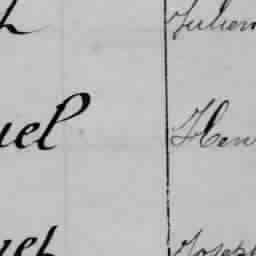 h Julien
uel Hen
uel Joseph